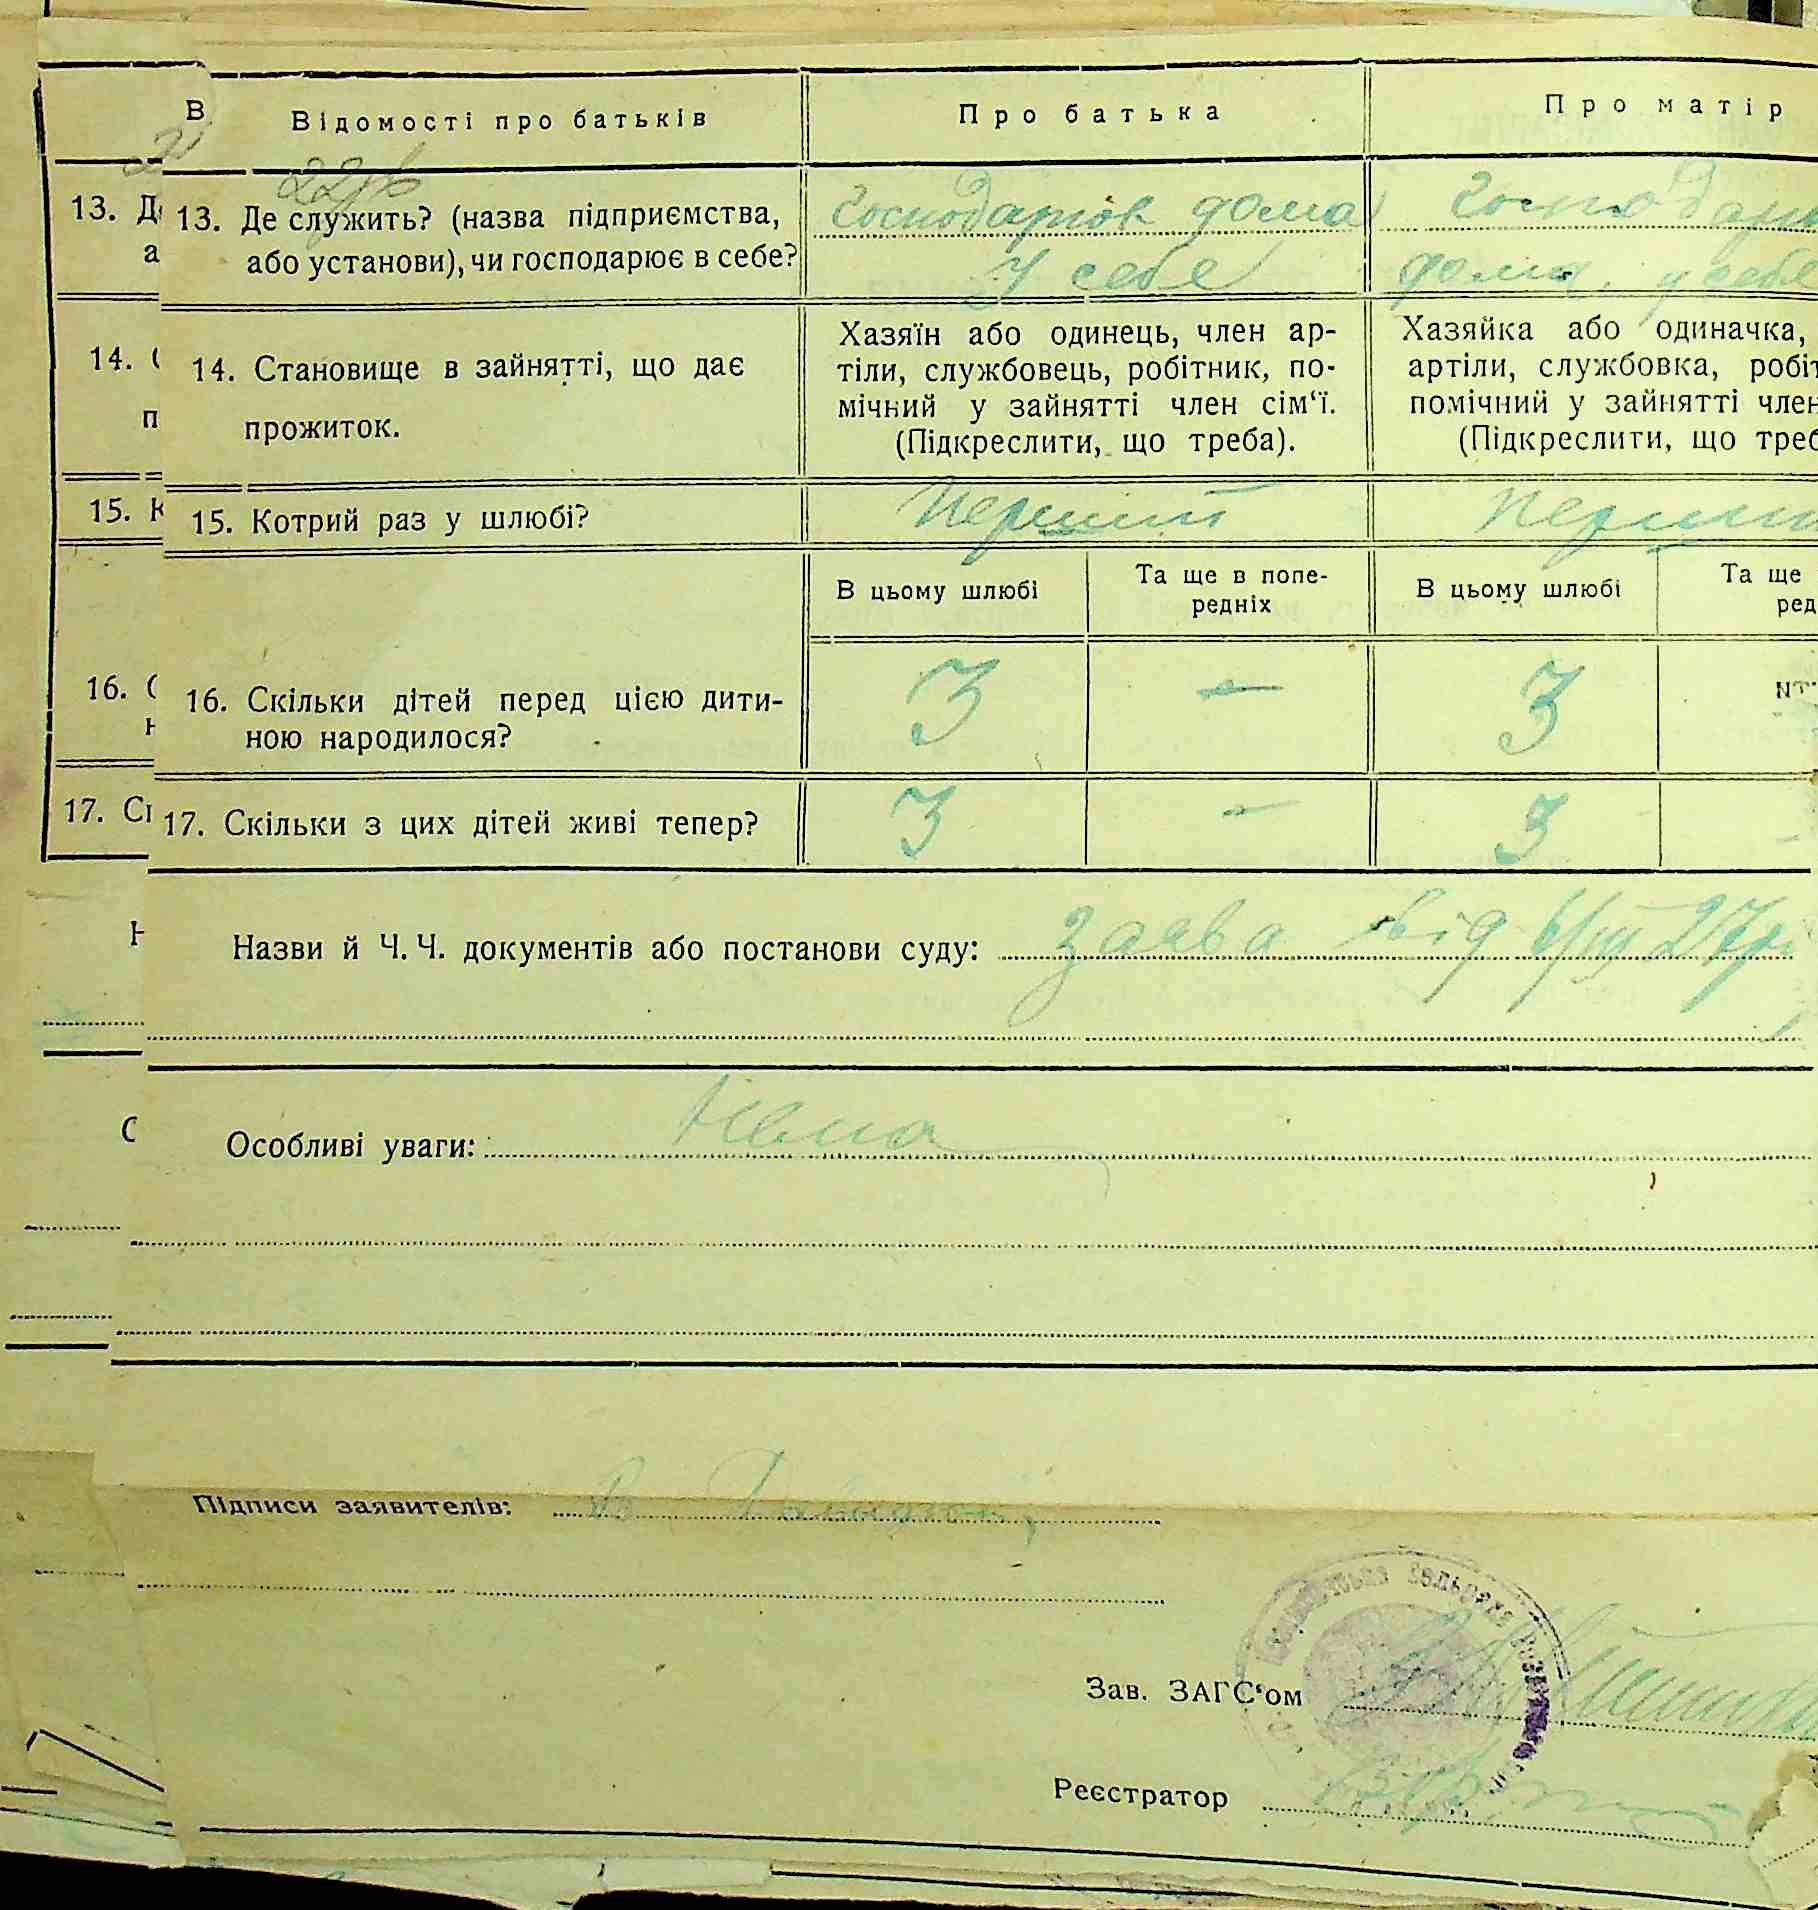 В
Відомості про батьків
Про батька
Про матір
22 рв
13. Д
а
13. Де служить? (назва підприємства,
або установи), чи господарює в себе?
господарює дома
у себе
господарює
дома, у себе
14. С
п
14. Становище в зайнятті, що дає
прожиток.
Хазяїн або одинець, член ар-
тіли, службовець, робітник, по-
мічний у зайнятті член сім‘ї.
(Підкреслити, що треба).
Хазяйка або одиначка,
артіли, службовка, робіт
помічний у зайнятті член
(Підкреслити, що треб
15. К
15. Котрий раз у шлюбі?
Перший
Перший
В цьому шлюбі
Та ще в попе-
редніх
В цьому шлюбі
Та ще
ред
16. С
н
16. Скільки дітей перед цією дити-
ною народилося?
3
—
3
17. Ск
17. Скільки з цих дітей живі тепер?
3
—
3
-
Н
Назви й Ч. Ч. документів або постанови суду: заява від 6/III 27р.
О
Особливі уваги: Нема
Підписи заявителів:
Зав. ЗАГС‘ом
Реєстратор